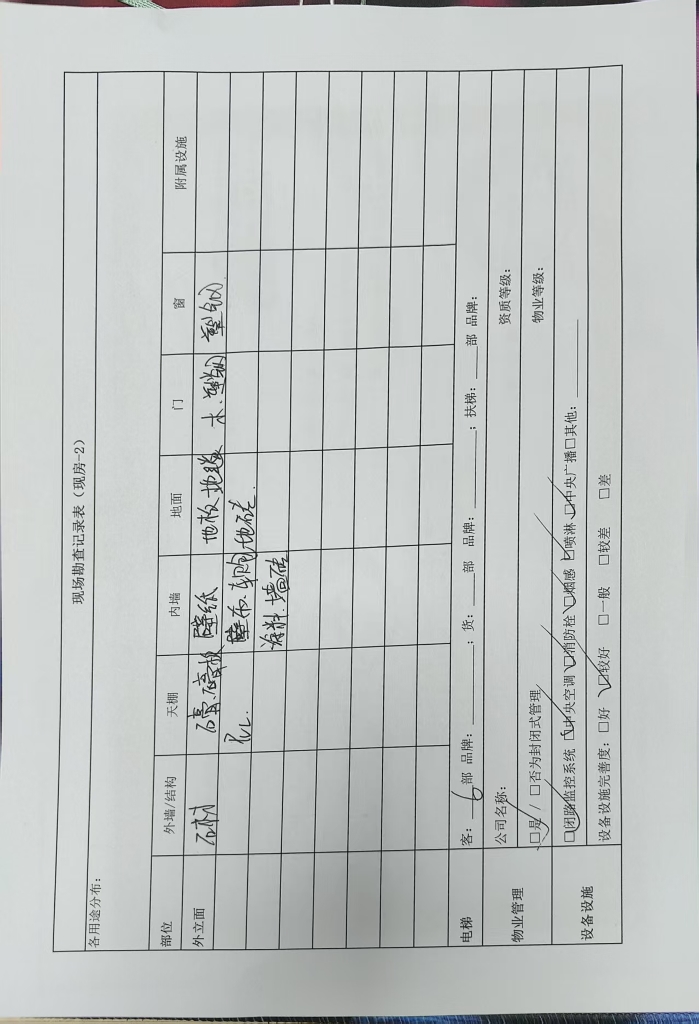 现场勘查记录表（现房-2）
各用途分布：
部位 外墙/结构 天棚 内墙 地面 门 窗 附属设施
外立面 石材 石膏.石膏板 壁纸 地板 地毯 木.塑钢 塑钢
PVC. 壁布. 地砖.
涂料.墙砖
电梯 客：6部 品牌： ；货： 部 品牌： ；扶梯： 部 品牌：
物业管理 公司名称： 资质等级：
☑是 / □否为封闭式管理 物业等级：
设备设施 ☑闭路监控系统 ☑中央空调 ☑消防栓 ☑烟感 ☑喷淋 ☑中央广播 □其他：
设备设施完善度：□好 ☑较好 □一般 □较差 □差